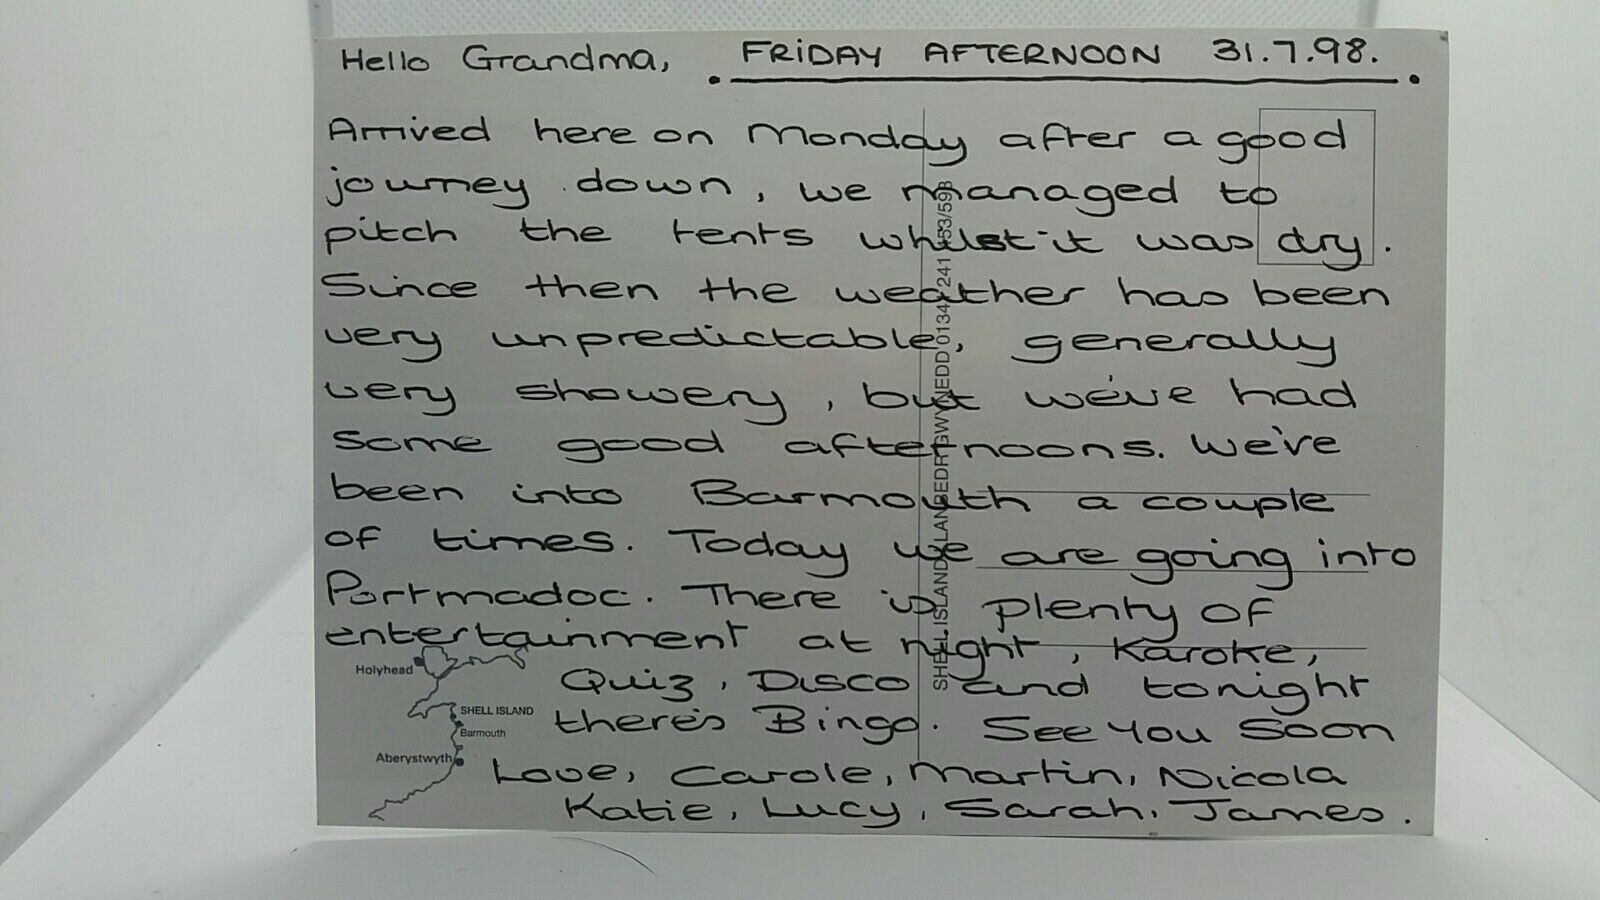 Hello Grandma, FRIDAY AFTERNOON 31.7.98.
Arrived here on Monday after a good
journey down, we managed to
pitch the tents whilst it was dry.
Since then the weather has been
very unpredictable, generally
very showery, but we've had
some good afternoons. We've
been into Barmouth a couple
of times. Today we are going into
Portmadoc. There is plenty of
entertainment at night, Karoke,
Quiz, Disco and tonight
there's Bingo. See You Soon
Love, Carole, Martin, Nicola
Katie, Lucy, Sarah, James.
Holyhead
SHELL ISLAND
Barmouth
Aberystwyth
SHELL ISLAND GWYNEDD 241